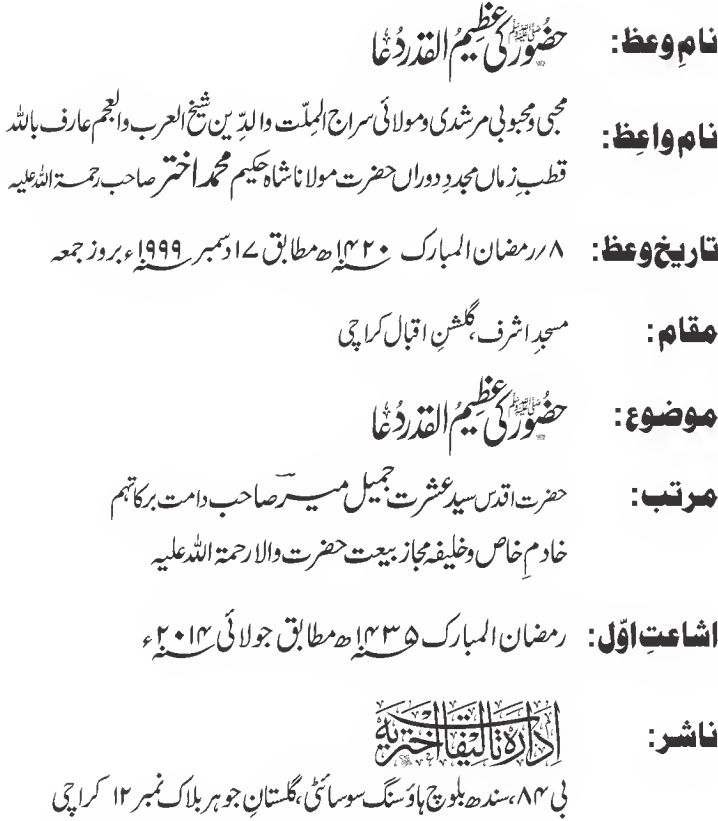 نامِ وعظ: حضُور ﷺ کی عظیمُ القدر دُعا
نامِ واعِظ: محبی و محبوبی مرشدی و مولائی سراج المِلّت والدِّین شیخ العرب والعجم عارف باللہ
قطبِ زماں مجددِ دوراں حضرت مولانا شاہ حکیم محمد اختر صاحب رحمۃ اللہ علیہ
تاریخ وعظ: ۸؍رمضان المبارک ۱۴۲۰؁ھ مطابق ۱۷ دسمبر ۱۹۹۹؁ء بروز جمعہ
مقام: مسجدِ اشرف، گلشنِ اقبال کراچی
موضوع: حضُور ﷺ کی عظیمُ القدر دُعا
مرتب: حضرت اقدس سید عشرت جمیل میرؔ صاحب دامت برکاتہم
خادمِ خاص و خلیفہ مجازِ بیعت حضرت والا رحمۃ اللہ علیہ
اشاعتِ اوّل: رمضان المبارک ۱۴۳۵؁ھ مطابق جولائی ۲۰۱۴؁ء
ناشر: اِدَارَہ تَالِیفَات اَختَرِیَہ
بی ۸۴، سندھ بلوچ ہاؤسنگ سوسائٹی، گلستانِ جوہر بلاک نمبر ۱۲ کراچی